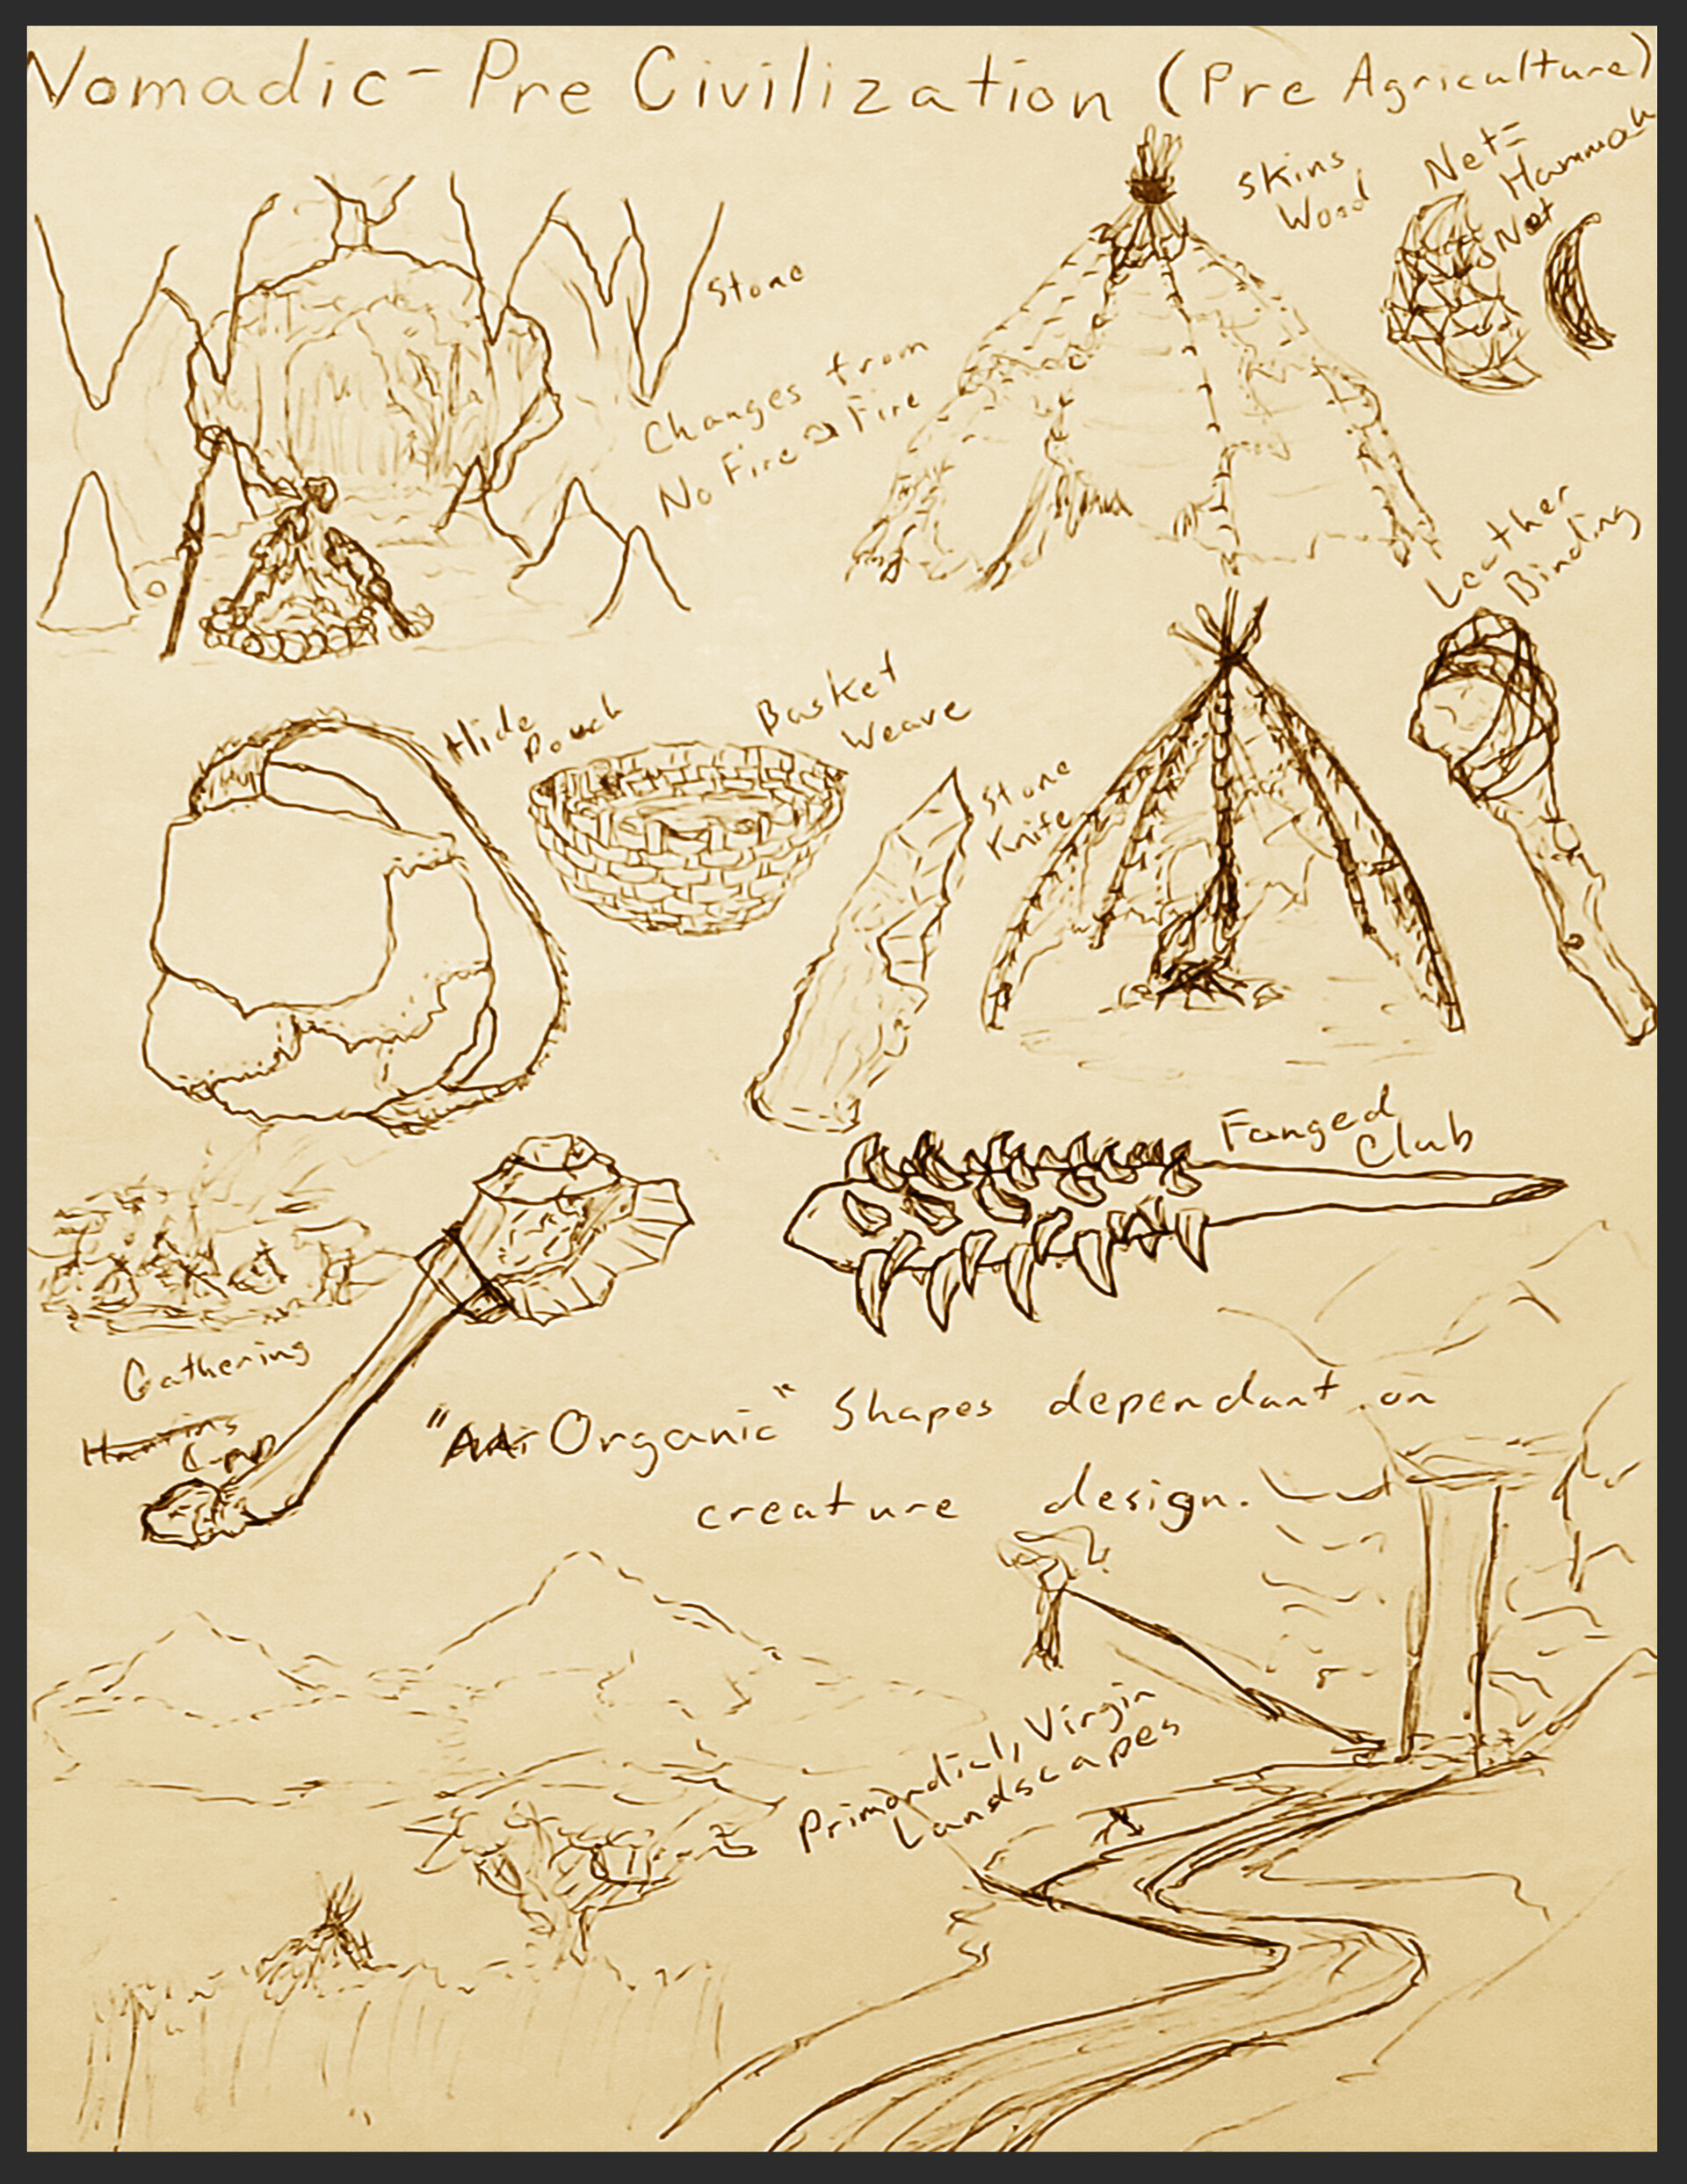 Nomadic - Pre Civilization (Pre Agriculture)
Skins
Wood
Net =
Net
Stone
Changes from
No Fire → Fire
Leather
Binding
Hide
Pouch
Basket
Weave
Stone
Knife
Fanged
Club
Gathering
Camp
"Organic" Shapes dependant on
creature design.
Primordial, Virgin
Landscapes